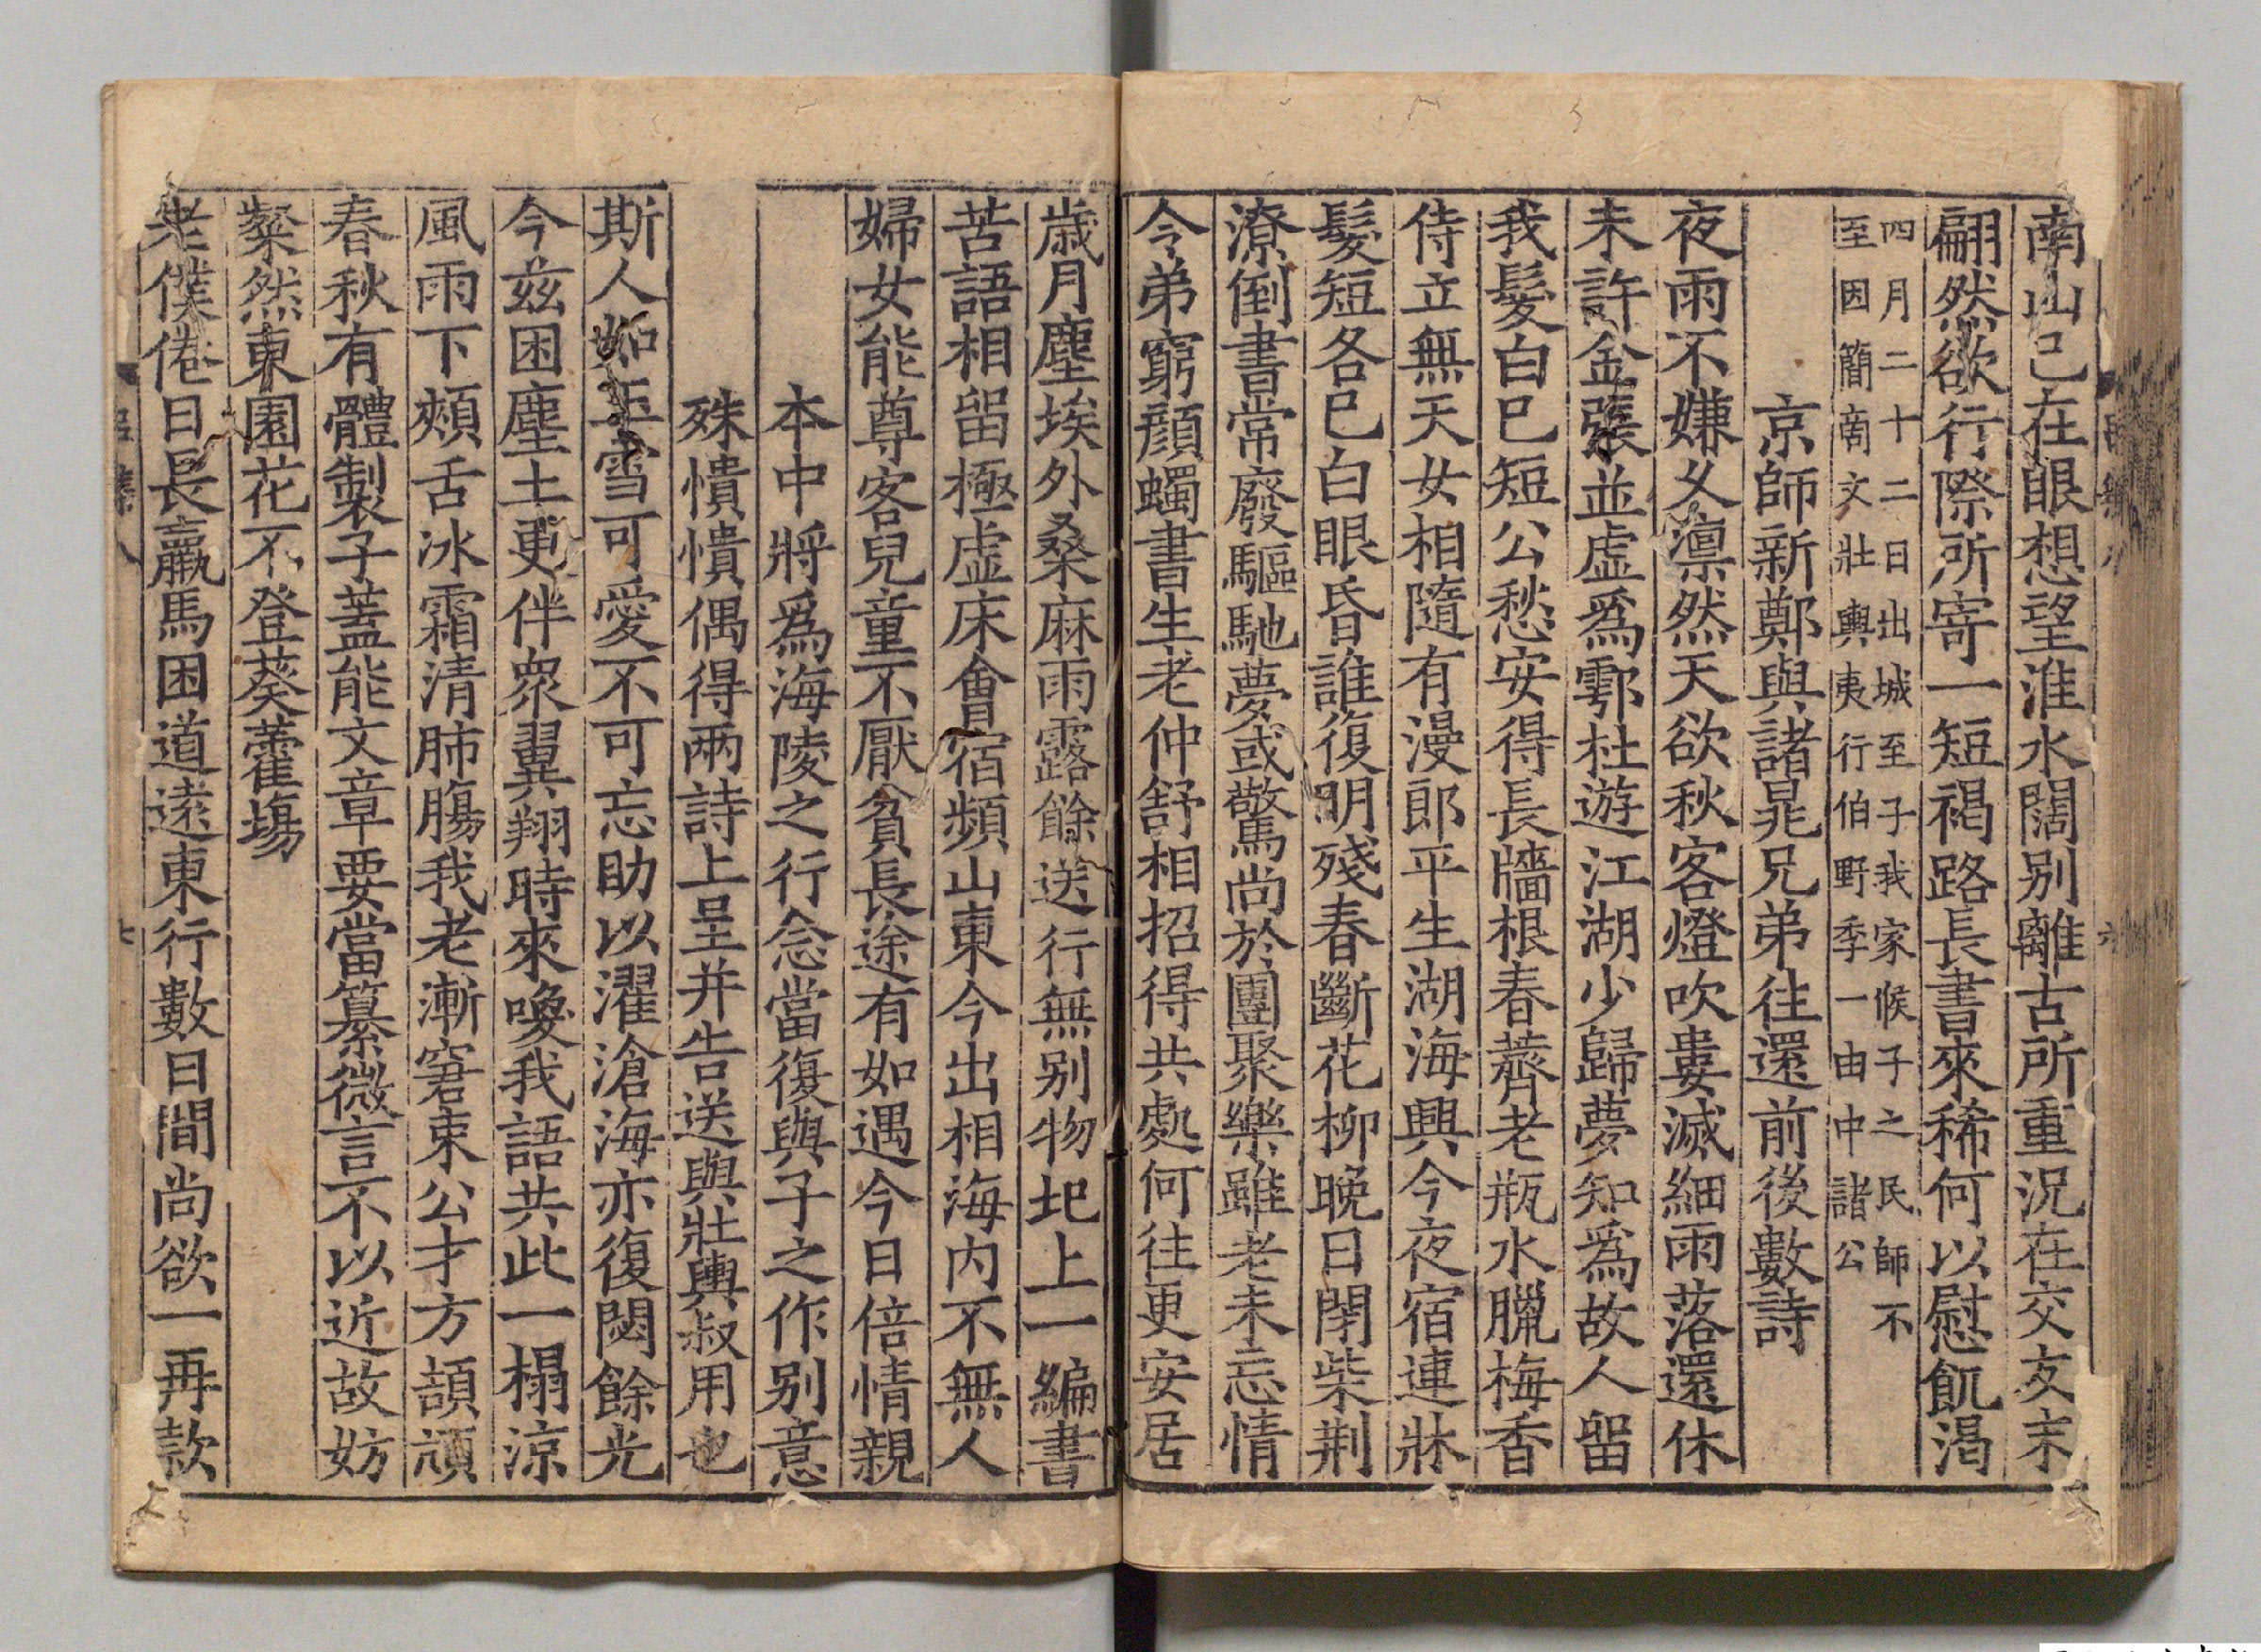 南山已在眼想望淮水闊别離古所重況在交友末
翩然欲行際所寄一短褐路長書來稀何以慰飢渴
四月二十二日出城至子我家候子之民師不
至因簡南文壯輿夷行伯野季一由中諸公
京師新鄭與諸晁兄弟往還前後數詩
夜雨不嫌久凛然天欲秋客燈吹婁滅細雨落還休
未許金張並虚爲鄠杜遊江湖少歸夢知爲故人留
我髮白已短公愁安得長牆根春薺老瓶水臘梅香
侍立無天女相隨有漫郎平生湖海興今夜宿連牀
髮短各已白眼昏誰復明殘春斷花柳晚日閉柴荆
潦倒書常廢驅馳夢或驚尚於團聚樂雖老未忘情
令弟窮顔蠋書生老仲舒相招得共處何往更安居
歳月塵埃外桑麻雨露餘送行無别物圯上一編書
苦語相留極虚床會宿頻山東今出相海内不無人
婦女能尊客兒童不厭貧長途有如遇今日倍情親
本中將爲海陵之行念當復與子之作别意
殊憒憒偶得兩詩上呈并告送與壯輿叔用也
斯人如玉雪可愛不可忘助以濯滄海亦復閟餘光
今兹困塵土更伴衆翼翔時來喚我語共此一榻涼
風雨下頰舌冰霜清肺腸我老漸窘束公才方頡頏
春秋有體製子蓋能文章要當纂微言不以近故妨
粲然東園花不登葵藿場
老僕倦日長羸馬困道遠東行數日間尚欲一再款